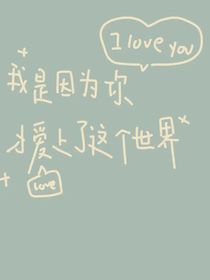 I love you
我是因为你
才爱上了这个世界
love